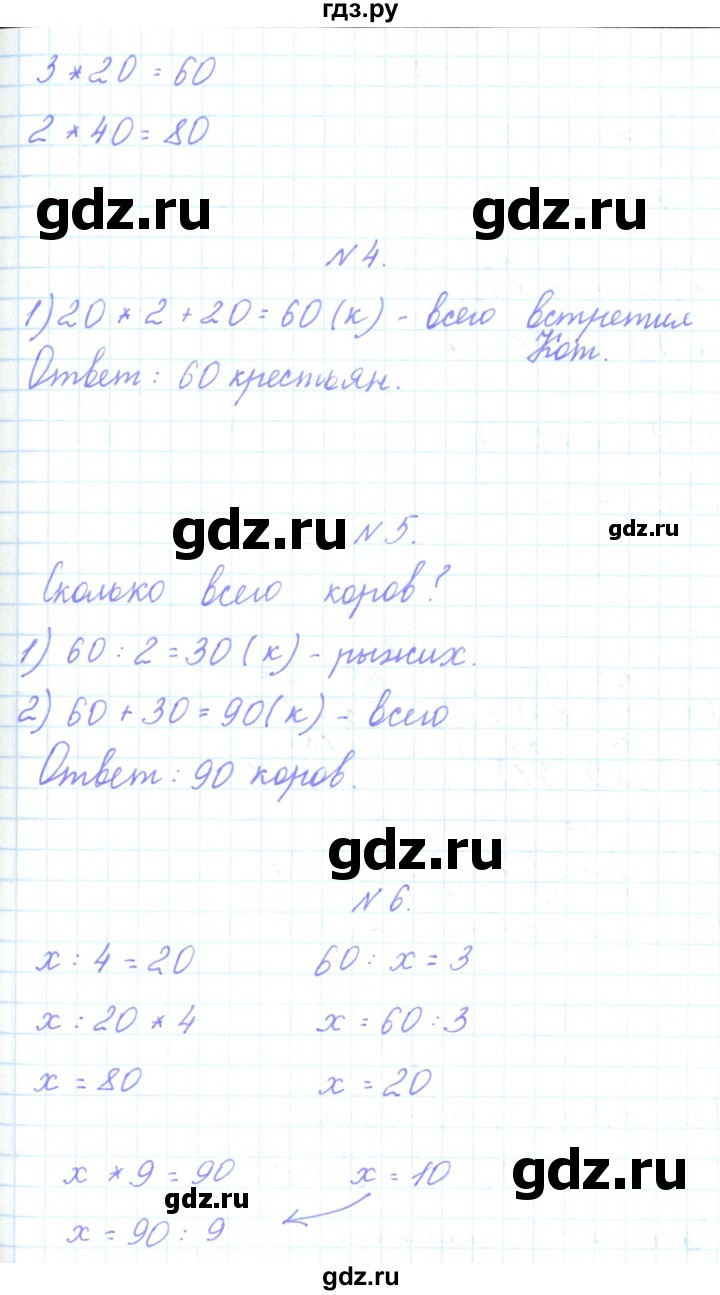 гдз.ру
3 * 20 = 60
2 * 40 = 80
gdz.ru gdz.ru
N 4.
1) 20 * 2 + 20 = 60 (к) - всего встретил
Кот.
Ответ : 60 крестьян.
gdz.ru N 5. gdz.ru
Сколько всего коров?
1) 60 : 2 = 30 (к) - рыжих.
2) 60 + 30 = 90 (к) - всего
Ответ : 90 коров.
gdz.ru
N 6.
x : 4 = 20 60 : x = 3
x : 20 * 4 x = 60 : 3
x = 80 x = 20
gdz.ru
x * 9 = 90 x = 10
gdz.ru
x = 90 : 9
gdz.ru